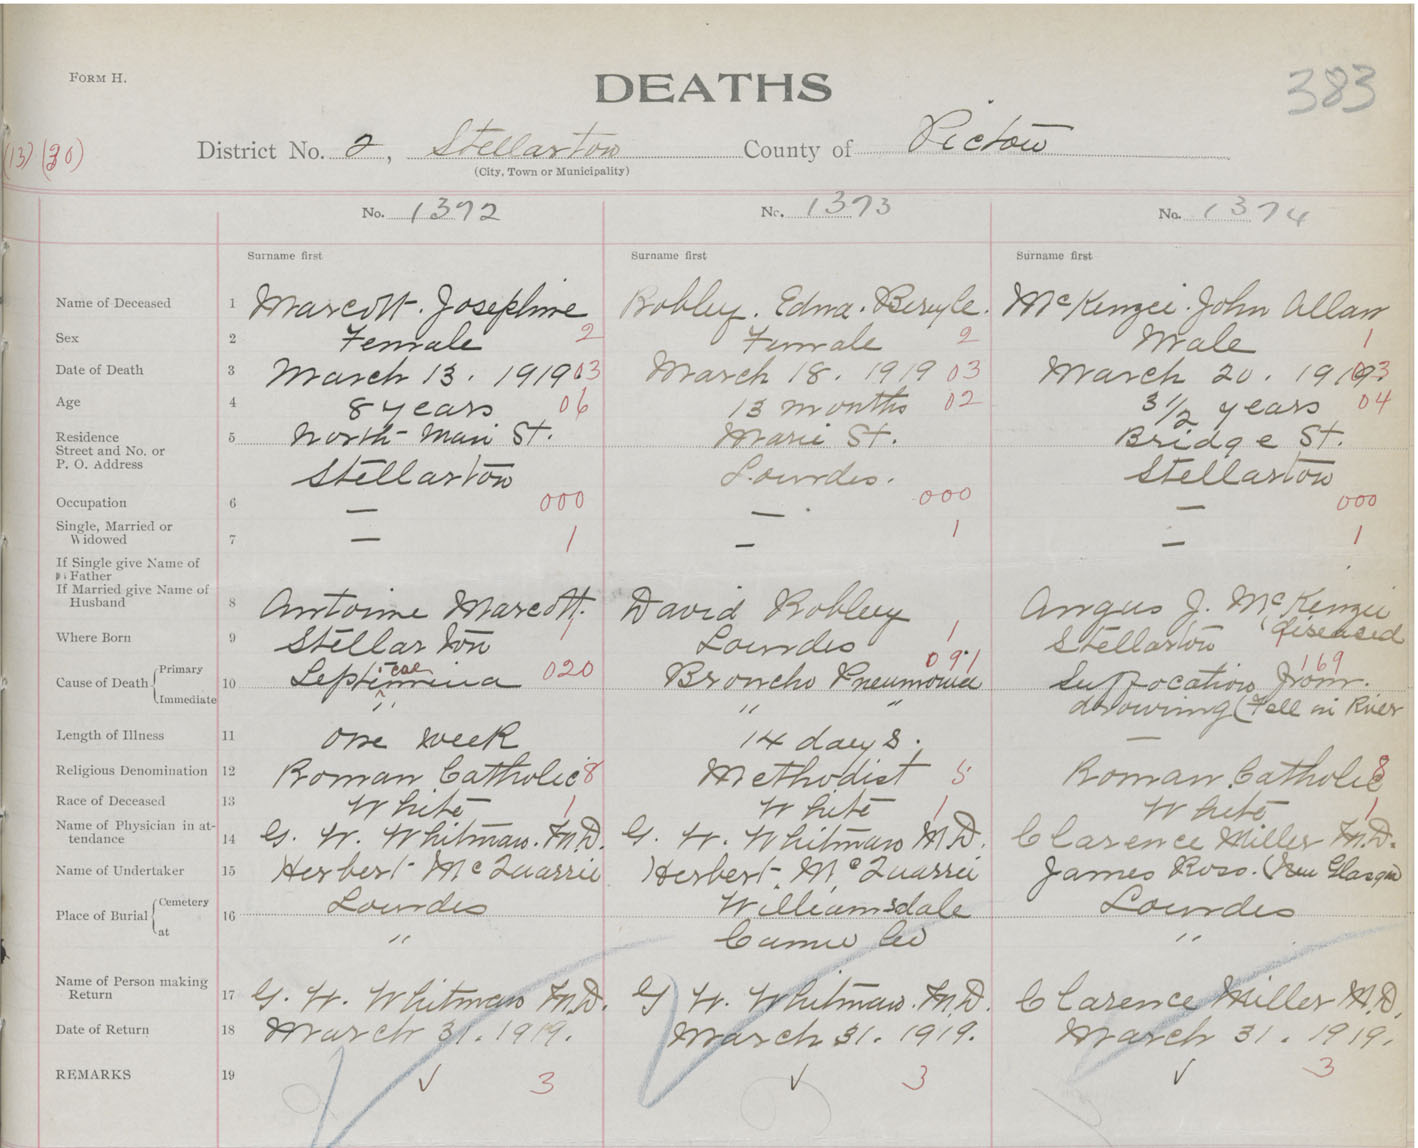 FORM H.
DEATHS
383
(13) (30)
District No. 2, Stellarton County of Pictou
(City, Town or Municipality)
No. 1372 No. 1373 No. 1374
Surname first Surname first Surname first
Name of Deceased 1 Marcott. Josephine Robley. Edna. Beryle. McKenzie. John Allan
Sex 2 Female 2 Female 2 Male 1
Date of Death 3 March 13. 1919 03 March 18. 1919 03 March 20. 1919. 03
Age 4 8 years 06 13 months 02 3 1/2 years 04
Residence 5 North Main St. Main St. Bridge St.
Street and No. or
P. O. Address Stellarton Lourdes. Stellarton
Occupation 6 — 000 — 000 — 000
Single, Married or
Widowed 7 — 1 — 1 — 1
If Single give Name of
Father
If Married give Name of
Husband 8 Antoine Marcott. David Robley Angus J. McKenzie
(diseased
Where Born 9 Stellarton 1 Lourdes 1 Stellarton
Cause of Death { Primary 10 Septicaemia 020 Broncho Pneumonia 091 Suffocation from 169
Immediate " " " drowing (Fell in River
Length of Illness 11 one week 14 days. —
Religious Denomination 12 Roman Catholic 8 Methodist 5 Roman Catholic 8
Race of Deceased 13 White 1 White 1 White 1
Name of Physician in at-
tendance 14 G. W. Whitman. M.D. G. W. Whitman M.D. Clarence Miller M.D.
Name of Undertaker 15 Herbert McQuarrie Herbert McQuarrie James Ross. (New Glasgow)
Place of Burial { Cemetery 16 Lourdes Williamsdale Lourdes
at " Co "
Name of Person making
Return 17 G. W. Whitman M.D. G W. Whitman. M.D. Clarence Miller M.D.
Date of Return 18 March 31. 1919. March 31. 1919. March 31. 1919.
REMARKS 19 ✓ 3 ✓ 3 ✓ 3